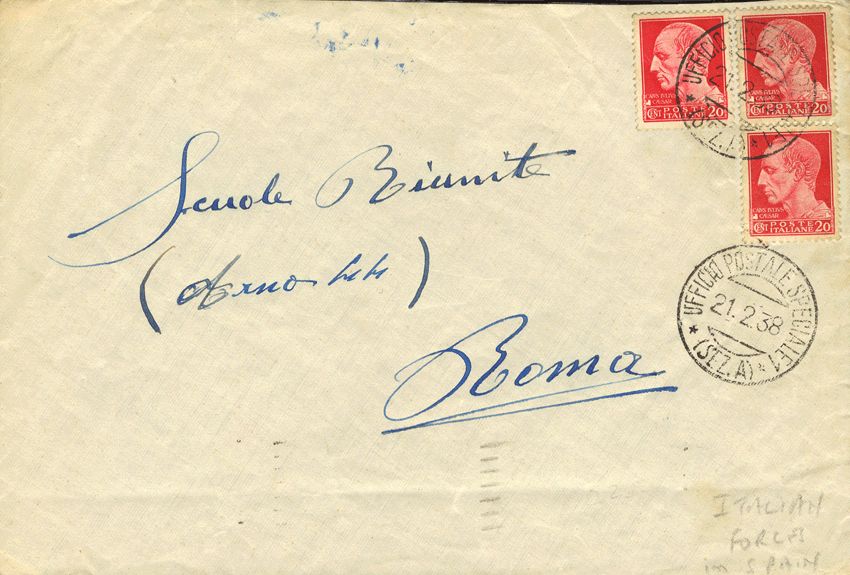 Scuole Riunite
(Arno 44)
Roma
CAIVS IVLIVS
CAESAR
CENT POSTE 20
ITALIANE
CAIVS IVLIVS
CAESAR
CENT POSTE 20
ITALIANE
CAIVS IVLIVS
CAESAR
CENT POSTE 20
ITALIANE
UFFICIO
21.2
(SEZ.A)
* UFFICIO POSTALE SPECIALE 1
21.2.38
* (SEZ.A) *
ITALIAN
FORCES
in SPAIN